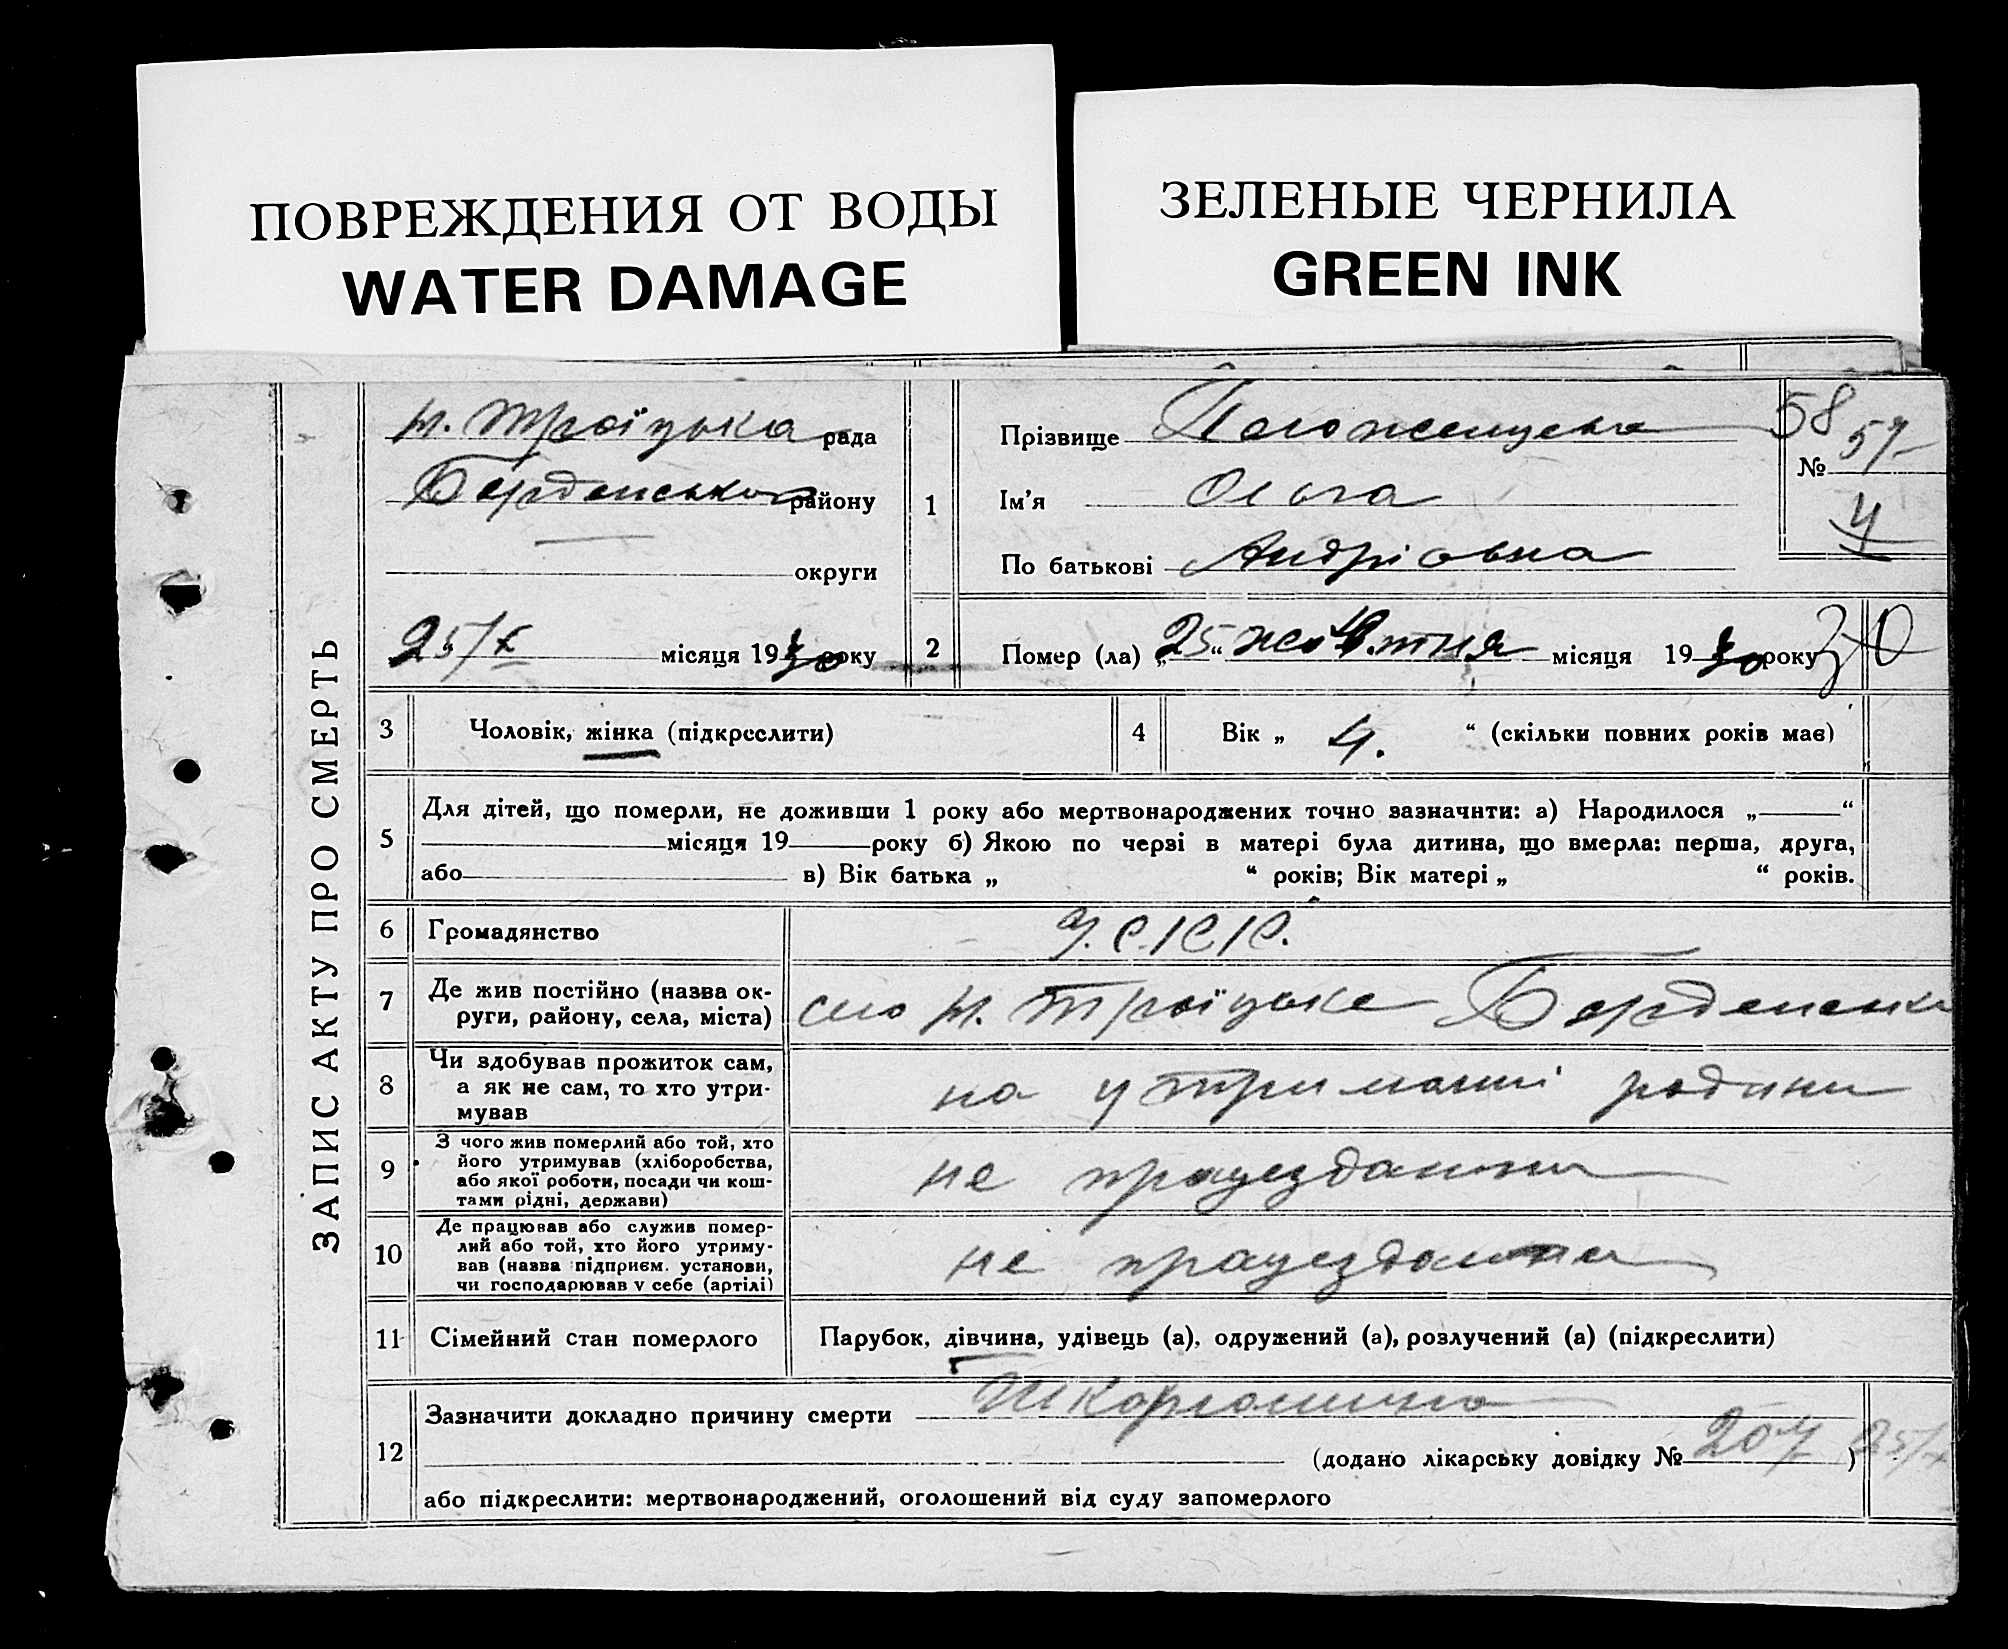 ПОВРЕЖДЕНИЯ ОТ ВОДЫ
WATER DAMAGE
ЗЕЛЕНЫЕ ЧЕРНИЛА
GREEN INK
ЗАПИС АКТУ ПРО СМЕРТЬ
н. Троїцька рада
району
округи
25/X місяця 1930 року
1
Прізвище
Ім'я Ольга
По батькові Андріовна
58
№ 57
4
2
Помер (ла) „25“ жовтня місяця 1930 року 30
3 Чоловік, жінка (підкреслити)
4 Вік „ 4. “ (скільки повних років має)
5 Для дітей, що померли, не доживши 1 року або мертвонароджених точно зазначити: а) Народилося „ “
місяця 19 року б) Якою по черзі в матері була дитина, що вмерла: перша, друга,
або в) Вік батька „ “ років; Вік матері „ “ років.
6 Громадянство У.С.Р.Р.
7 Де жив постійно (назва ок-
руги, району, села, міста) село н. Троїцьке
8 Чи здобував прожиток сам,
а як не сам, то хто утри-
мував
на утриманні родини
9 З чого жив померлий або той, хто
його утримував (хліборобства,
або якої роботи, посади чи кош-
тами рідні, держави)
не працездатна
10 Де працював або служив помер-
лий або той, хто його утриму-
вав (назва підприєм. установи,
чи господарював у себе (артілі)
не працездатна
11 Сімейний стан померлого Парубок, дівчина, удівець (а), одружений (а), розлучений (а) (підкреслити)
12 Зазначити докладно причину смерти Шкарлатина
(додано лікарську довідку № 207 ) 25/X
або підкреслити: мертвонароджений, оголошений від суду запомерлого